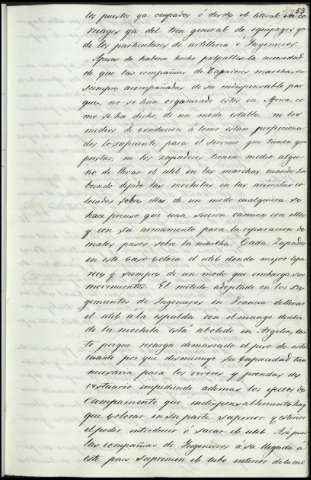 53
los puertos ya ocupados ó desde el litoral
ya del tren general de equipages ya
de los particulares de artilleria é Yngenieros.
Apesar de haberse hecho palpable la necesidad
de que las compañias de Zapadores marchasen
siempre acompañadas de su indispensable par
que, no se han organizado estos en Africa, co
mo se ha dicho de un modo estable, ni los
medios de conduccion á lomo están proporciona
dos lo suficiente para el servicio que tienen que
prestar, ni los zapadores tienen medio algu
no de llevar el util en las marchas cuando ha
biendo dejado las mochilas en las acémilas co
locados sobre ellas de un modo cualquiera se
hace preciso que una seccion camine con ellos
y con su armamento para la reparacion de
malos pasos sobre la marcha. Cada Zapador
en este caso coloca el util donde mejor le pa
rece y siempre de un modo que embaraza sus
movimientos. El método adoptado en los Re
gimientos de Yngenieros en Francia de llevar
el util á la espalda con el mango dentro
de la mochila está abolido en Argelia, tan
to porque recarga demasiado el peso de esta
cuanto por que disminuye su capacidad tan
necesaria para los víveres y prendas de
vestuario impidiendo ademas los efectos de
Campamento que indispensablemente hay
que colocar en su parte superior y esterior
el poder introducir ó sacar el util. Asi que
las compañias de Yngenieros á su llegada á
este pais suprimen el tubo interior de la mo